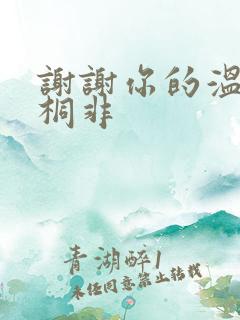 謝謝你的溫
桐非
青湖醉1
未經同意禁止轉載